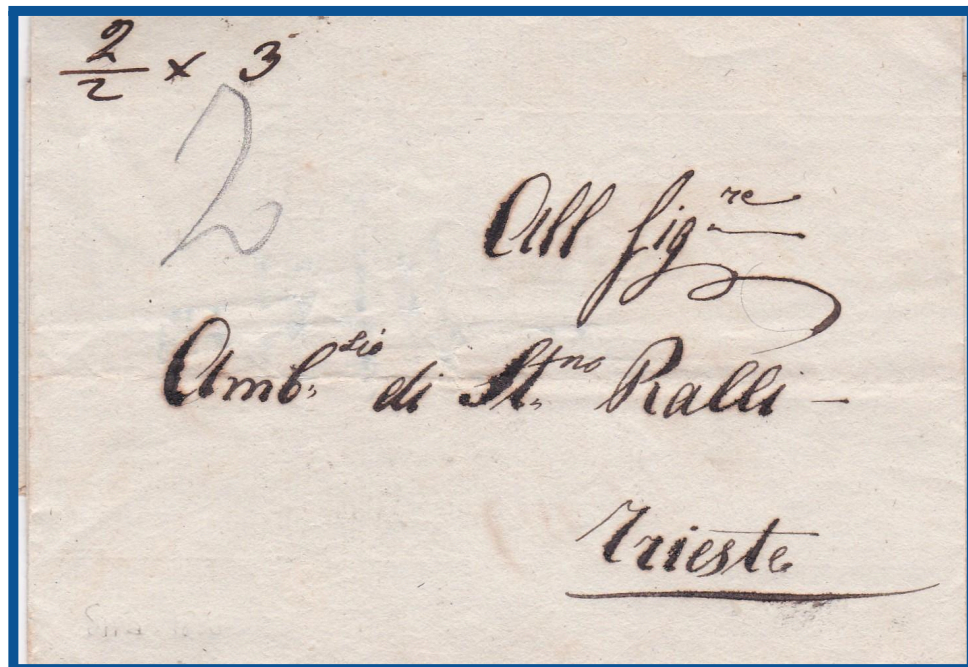 2/2 x 3
2
All Sig.re
Amb.sio di St.no Ralli -
Trieste